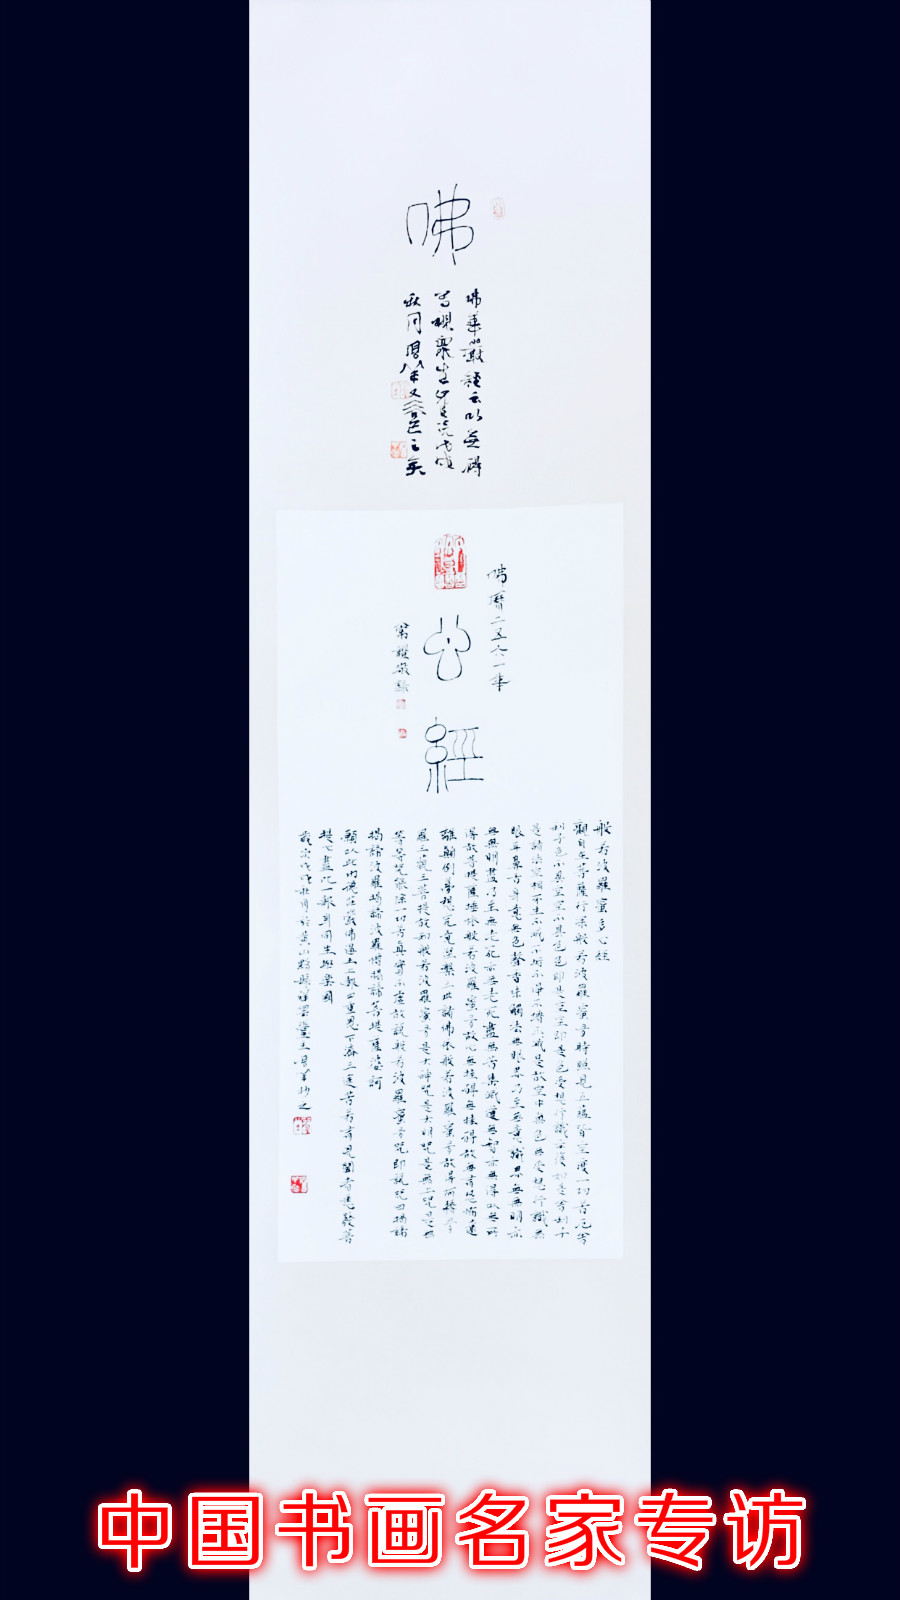 佛
佛華嚴經云以無碍
眾生
佛曆二五六一年
心經
般若波羅蜜多心經
觀自在菩薩行深般若波羅蜜多時照見五蘊皆空度一切苦厄舍
利子色不異空空不異色色即是空空即是色受想行識亦復如是舍利子
是諸法空相不生不滅不垢不淨不增不減是故空中無色無受想行識無
眼耳鼻舌身意無色聲香味觸法無眼界乃至無意識界無無明亦
無無明盡乃至無老死亦無老死盡無苦集滅道無智亦無得以無所
得故菩提薩埵依般若波羅蜜多故心無掛碍無掛碍故無有恐怖遠
離顛倒夢想究竟涅槃三世諸佛依般若波羅蜜多故得阿耨多
羅三藐三菩提故知般若波羅蜜多是大神咒是大明咒是無上咒是無
等等咒能除一切苦真實不虛故說般若波羅蜜多咒即說咒曰揭諦
揭諦波羅揭諦波羅僧揭諦菩提薩婆訶
願以此功德莊嚴佛淨土上報四重恩下濟三塗苦若有見聞者悉發菩
提心盡此一報身同生極樂國
歲次戊戌
中国书画名家专访